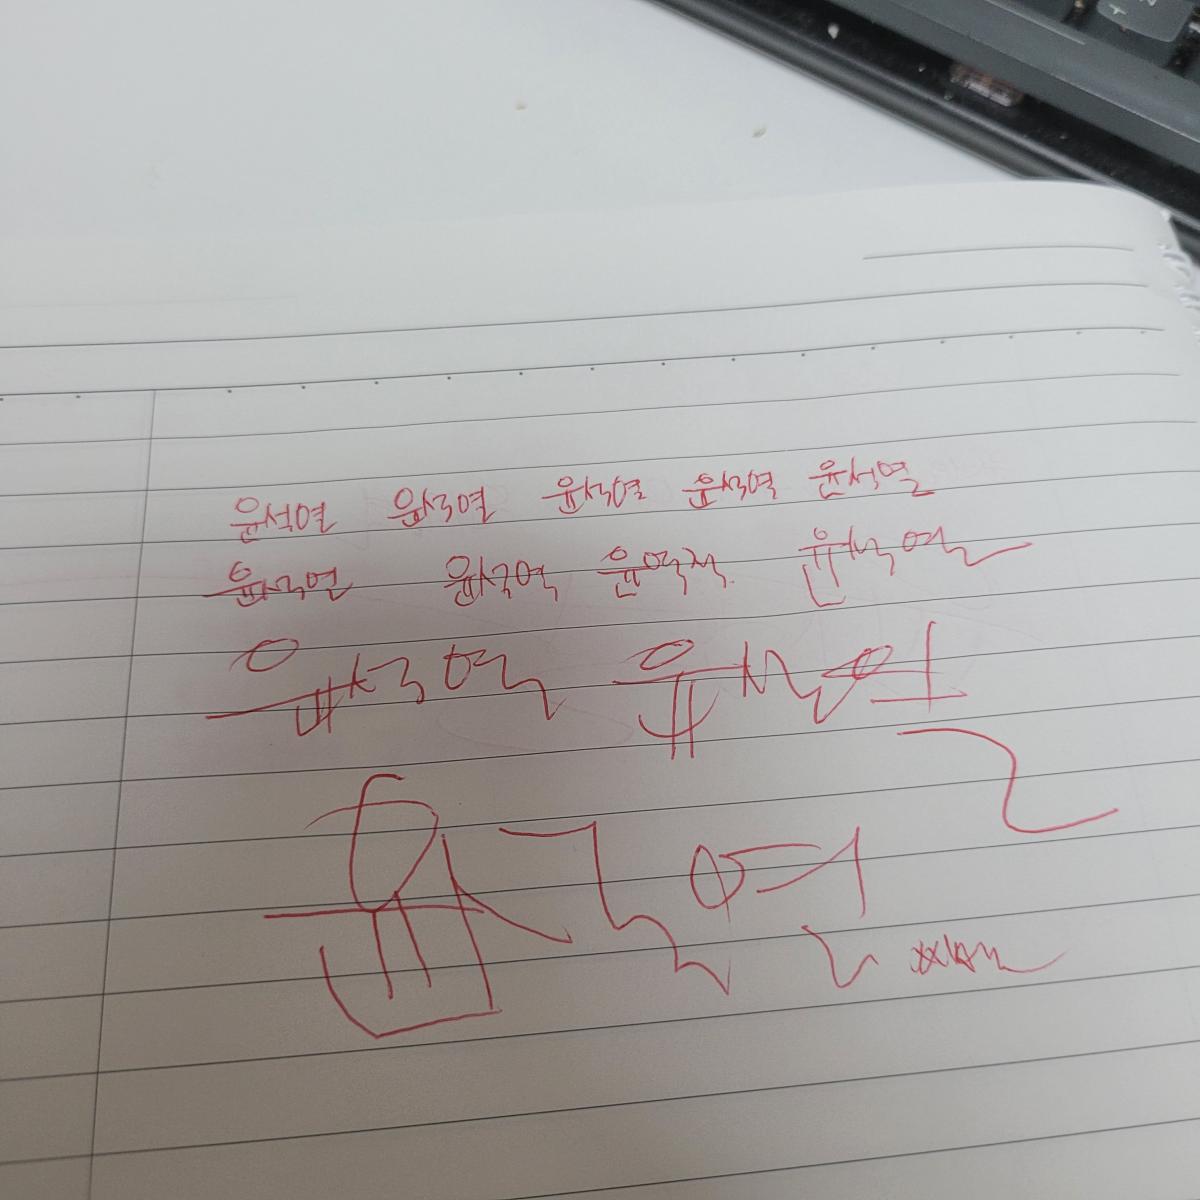 윤석열 윤석열 윤석열 윤석열 윤석열
윤석열 윤석열 윤석열
윤석열 윤석열
윤석열